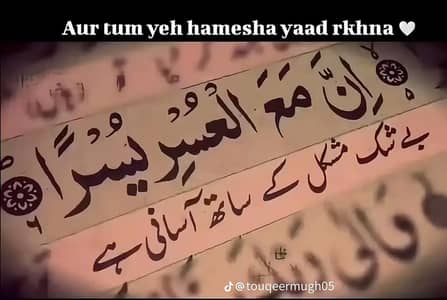 Aur tum yeh hamesha yaad rkhna 🤍
اِنَّ مَعَ الْعُسْرِ يُسْرًا
۶
بے شک مشکل کے ساتھ آسانی ہے
@touqeermugh05